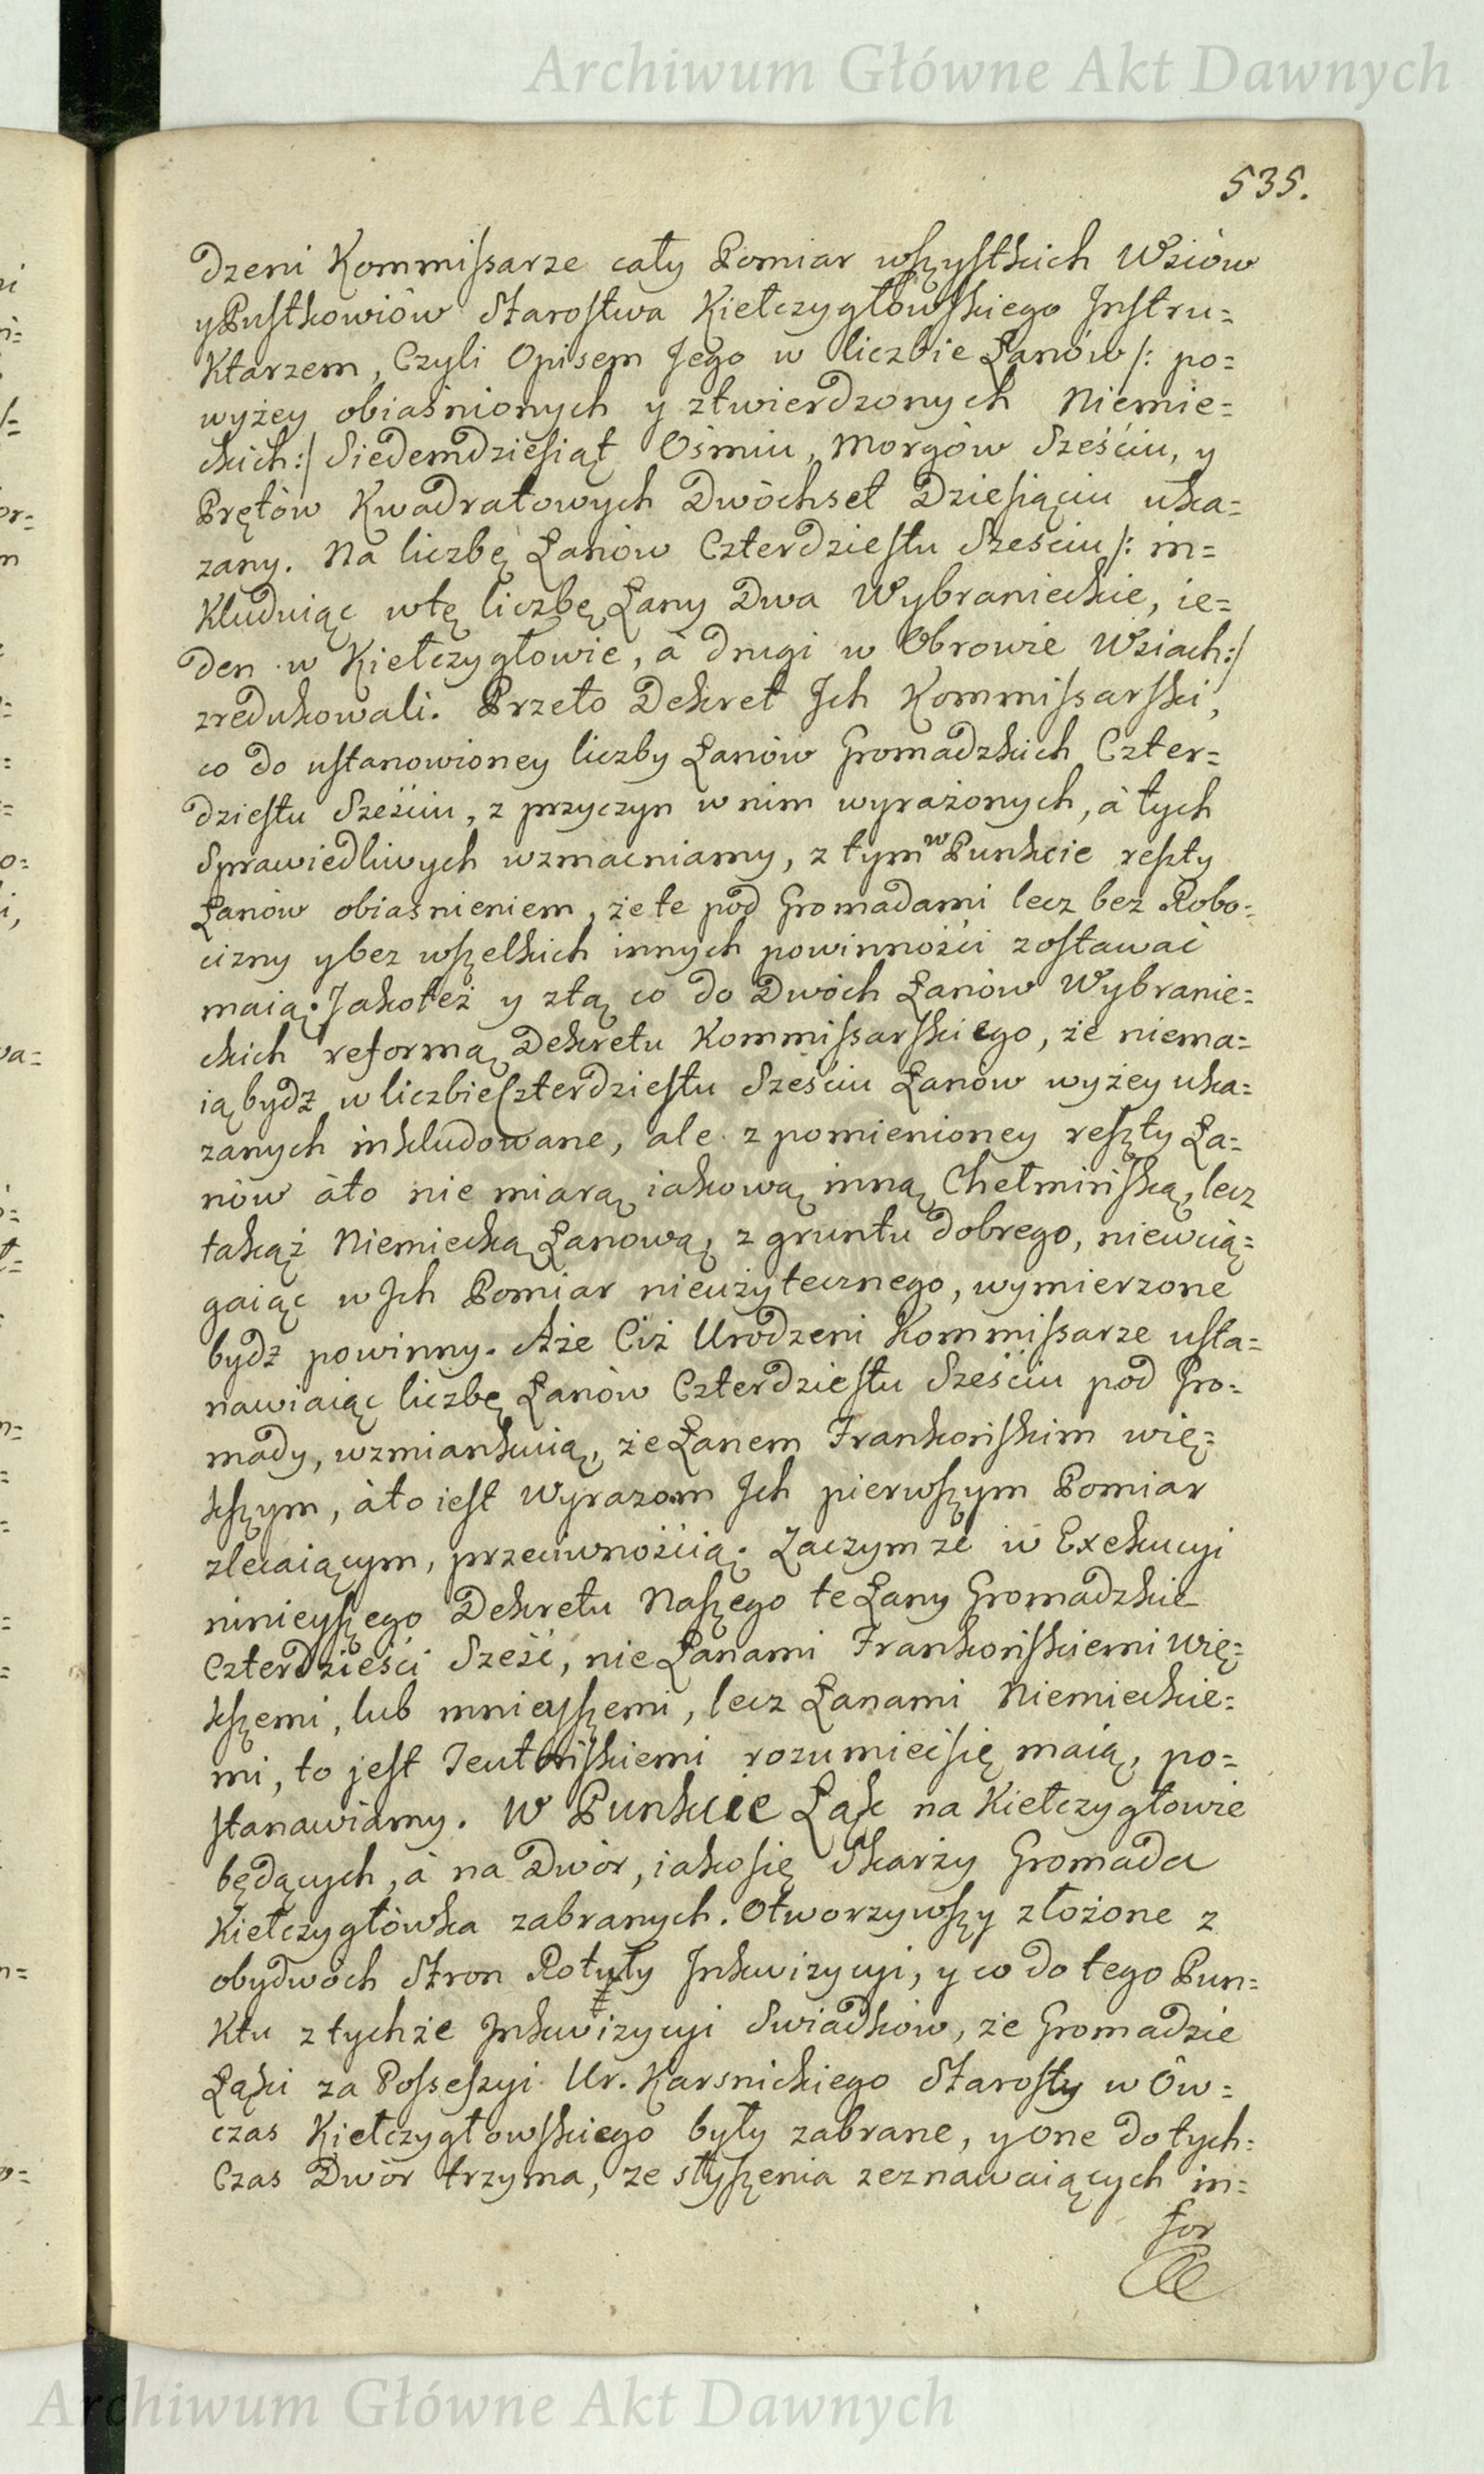 Archiwum Główne Akt Dawnych
535.
dzeni Kommissarze cały Pomiar wszystkich Wsiów
y Pustkowiów Starostwa Kiełczygłowskiego Jnstru=
ktarzem, Czyli Opisem Jego w liczbie Łanów /: po=
wyżey obiaśnionych y ztwierdzonych Niemie=
ckich :/ Siedemdziesiąt Ośmiu, Morgów Sześciu, y
Prętów Kwadratowych Dwóchset Dziesiąciu uka=
zany. Na liczbę Łanów Czterdziestu Sześciu /: in=
kluduiąc wtę liczbę Łany Dwa Wybranieckie, ie=
den w Kiełczygłowie, á drugi w Obrowie Wsiach :/
zredukowali. Przeto Dekret Jch Kommissarski,
co do ustanowioney liczby Łanów Gromadzkich Czter=
dziestu Sześciu, z przyczyn w nim wyrażonych, á tych
Sprawiedliwych wzmacniamy, z tym w Punkcie reszty
Łanów obiaśnieniem, że te pod Gromadami lecz bez Robo=
cizny y bez wszelkich innych powinności zostawać
maią. Jakoteż y ztą co do Dwóch Łanów Wybranie=
ckich reformą Dekretu Kommissarskiego, że niema=
ią bydź w liczbie Czterdziestu Sześciu Łanów wyżey uka=
zanych inkludowane, ale z pomienioney reszty Ła=
nów áto nie miarą iakową inną Chełmińską, lecz
takąż Niemiecką Łanową, z gruntu dobrego, niewcią=
gaiąc w Jch Pomiar nieużytecznego, wymierzone
bydź powinny. Aże Ciż Urodzeni Kommissarze usta=
nawiaiąc liczbę Łanów Czterdziestu Sześciu pod Gro=
mady, wzmiankuią, że Łanem Frankońskim wię=
kszym, áto iest Wyrazom Jch pierwszym Pomiar
zlecaiącym, przeciwnością. Zaczym że w Exekucyi
ninieyszego Dekretu Naszego te Łany Gromadzkie
Czterdzieści Sześć, nie Łanami Frankońskiemi Wię=
kszemi, lub mnieyszemi, lecz Łanami Niemieckie=
mi, to jest Teutońskiemi rozumieć się maią, po=
stanawiamy. W Punkcie Łąk na Kiełczygłowie
będących, á na Dwór, iako się Skarży Gromada
Kiełczygłówka zabranych. Otworzywszy złożone z
obydwóch Stron Rotuły Jnkwizycyi, y co do tego Pun=
ktu z tychże Jnkwizycyi Swiadków, że Gromadzie
Łąki za Possessyi Ur. Karsnickiego Starosty w Ów=
czas Kiełczygłowskiego były zabrane, y one do tych=
Czas Dwór trzyma, ze słyszenia zeznawaiących in=
for
Archiwum Główne Akt Dawnych